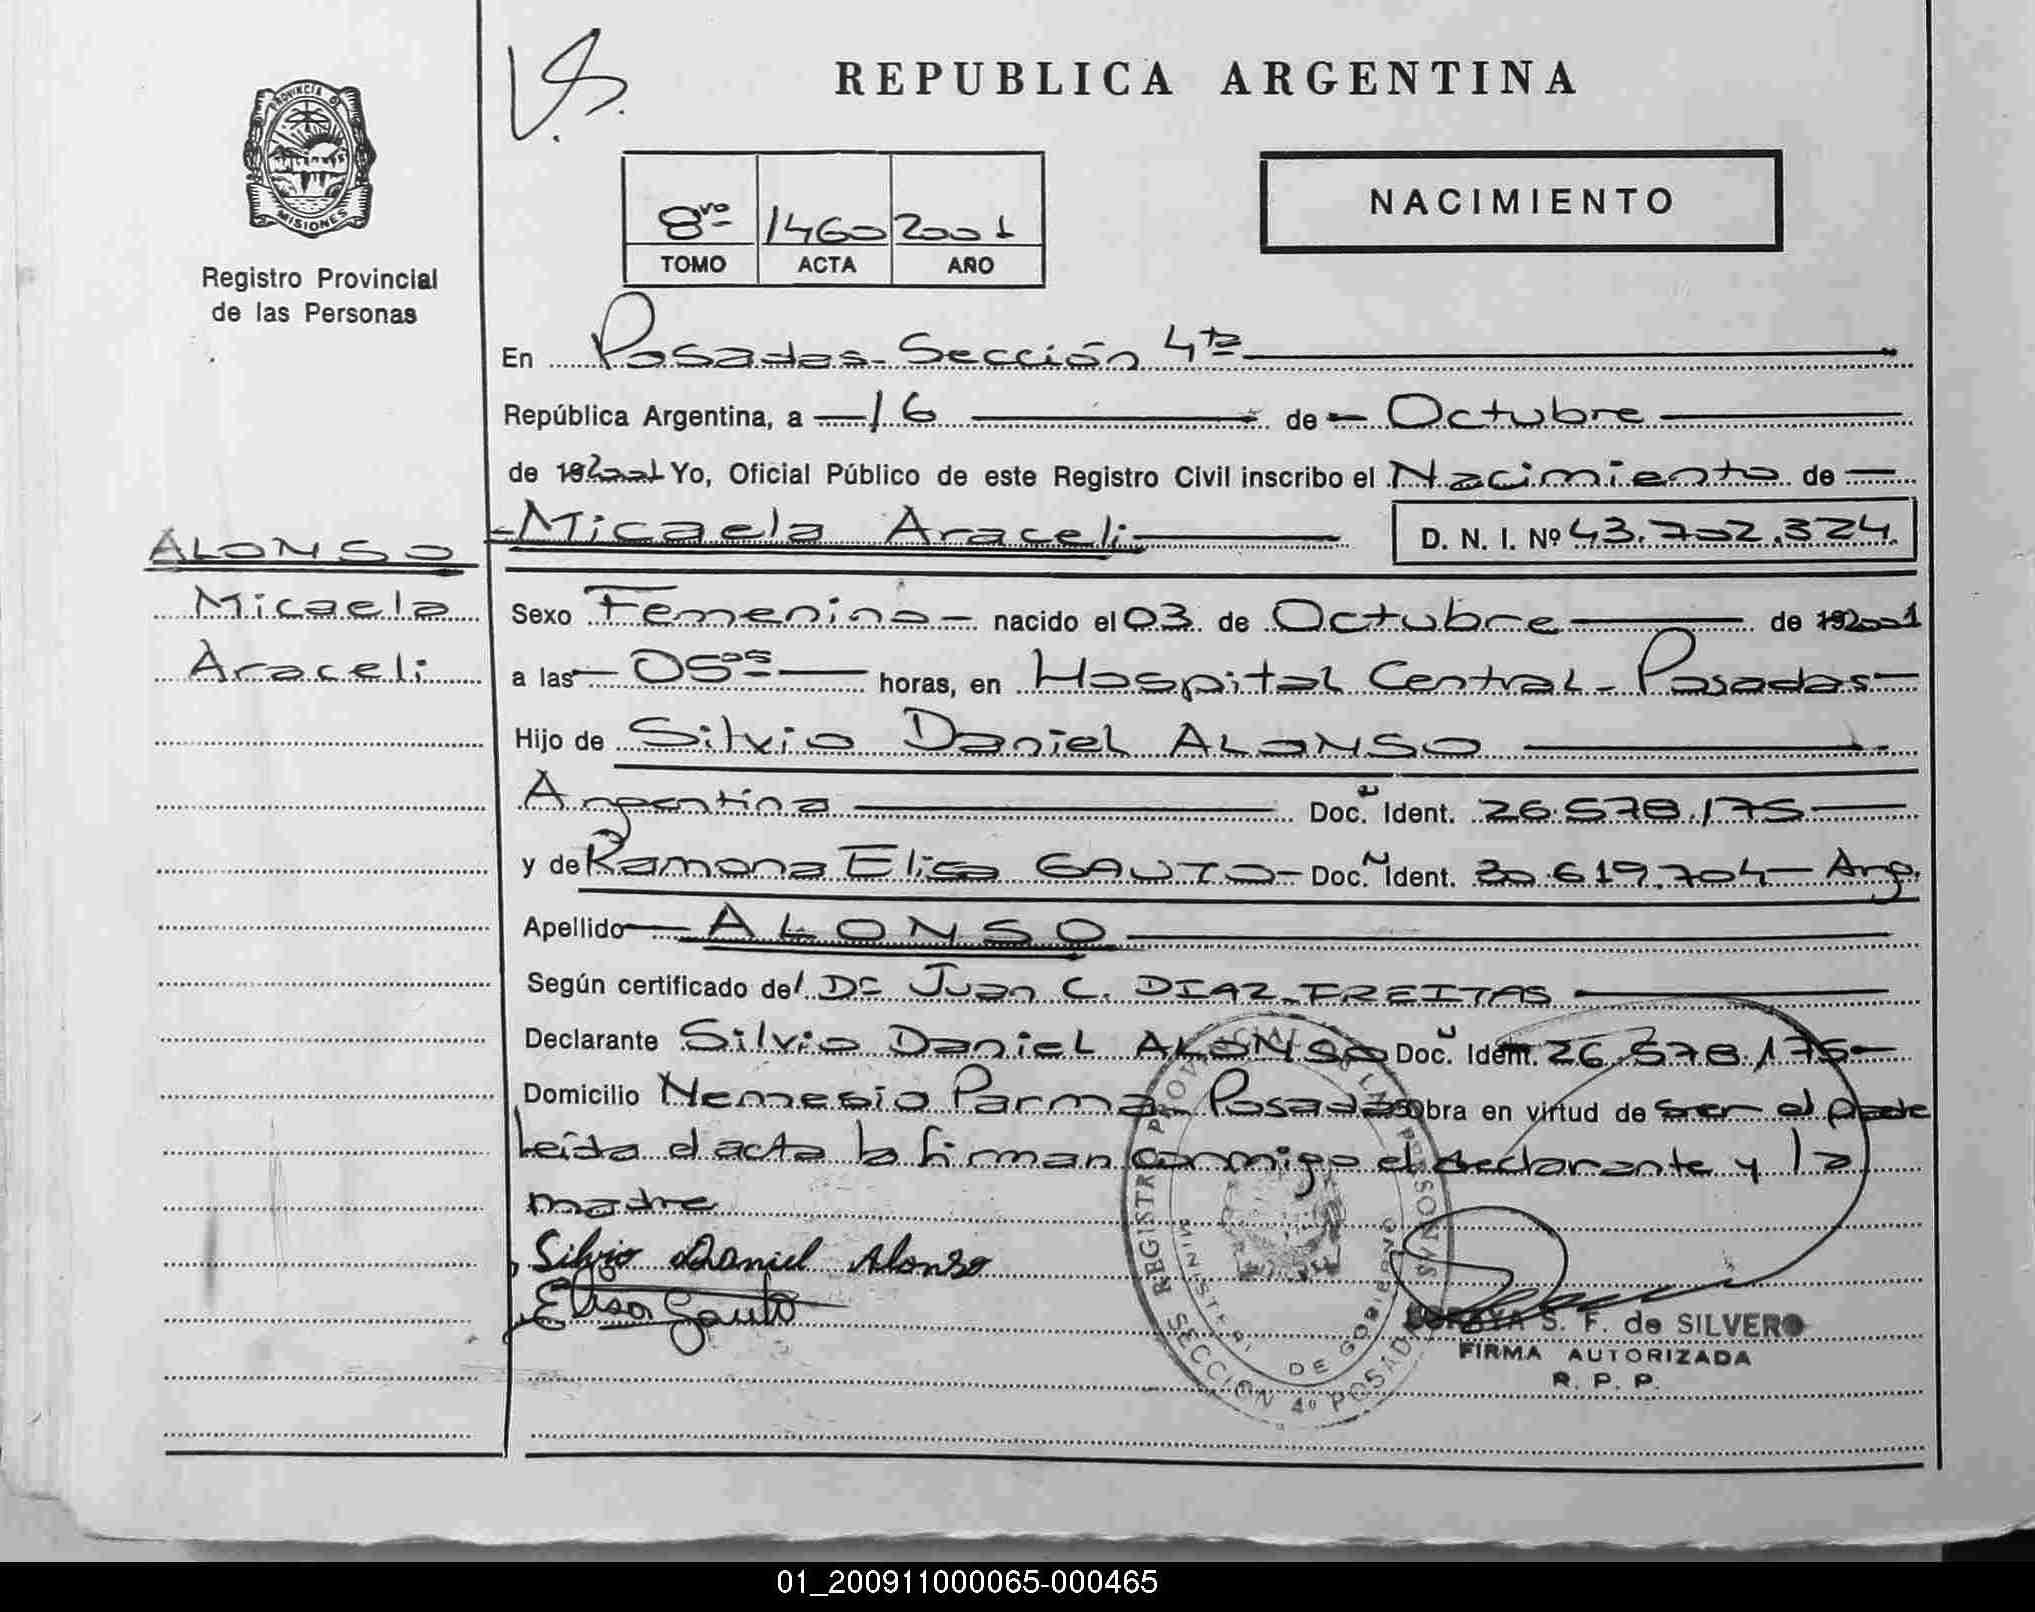 V.S.
REPUBLICA ARGENTINA
PROVINCIA DE
MISIONES
Registro Provincial
de las Personas
8vo 1460 2001
TOMO ACTA AÑO
NACIMIENTO
En Posadas-Sección 4ta
República Argentina, a 16 de Octubre
de 192001 Yo, Oficial Público de este Registro Civil inscribo el Nacimiento de
Micaela Araceli D. N. I. Nº 43.702.324
ALONSO
Micaela
Araceli
Sexo Femenino nacido el 03 de Octubre de 192001
a las 05 05 horas, en Hospital Central - Posadas
Hijo de Silvio Daniel ALONSO
Argentina Doc. Ident. 26.578.175
y de Ramona Elisa GAUTO - Doc. Ident. 30.619.704 - Arg.
Apellido ALONSO
Según certificado del Dr Juan C. DIAZ FREITAS
Declarante Silvio Daniel ALONSO Doc. Ident. 26.578.175
Domicilio Nemesio Parma - Posadas obra en virtud de ser el padre
Leída el acta la firman conmigo el declarante y la
madre
Silvio Daniel Alonso
Elisa Gauto
REGISTRO PROVINCIAL DE LAS PERSONAS
MINISTERIO DE GOBIERNO
SECCION 4º POSADAS MISIONES
S. F. de SILVERO
FIRMA AUTORIZADA
R. P. P.
01_200911000065-000465